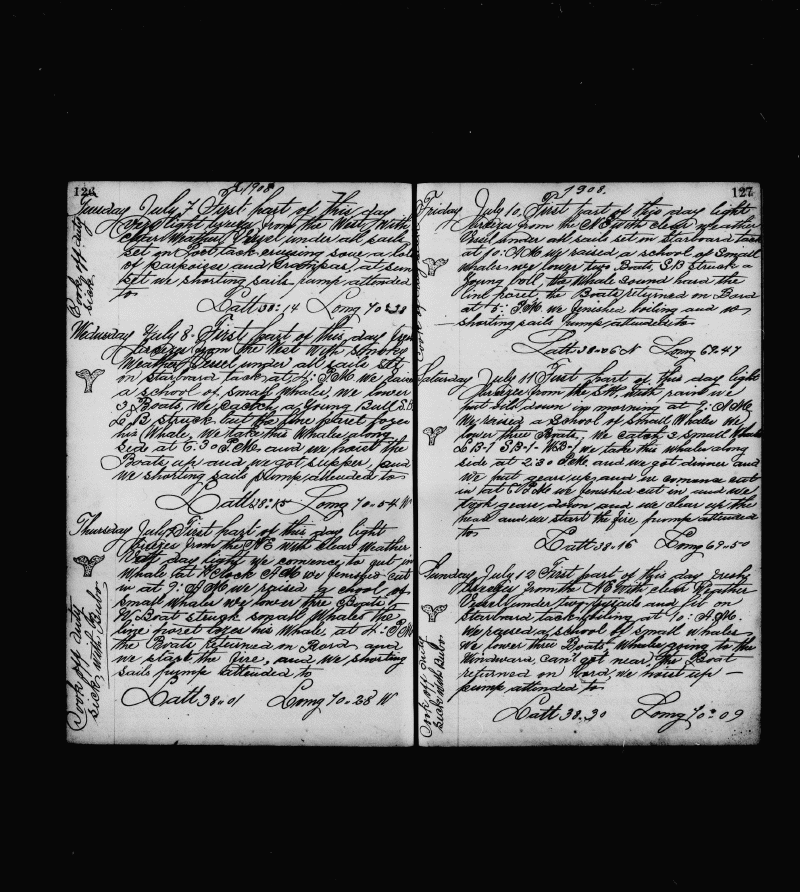 126
1908
Tuesday July 7 First part of this day
light breeze from the West, with
clear weather Vessel under all sails
set in Port tack cruising some a lot
of porpoises and Grampas, at sun
set we shorting sails pump attended
to
Latt 38:14 Long 70:38
Cook off duty
sick.
Wednesday July 8. First part of this day fresh
breeze from the West with smoky
Weather Vessel under all sails set
on starboard tack at 2. P.M. we raise
a school of small whales, we lower
3 Boats, We catch a young Bull S.B.
L.B struck but the line paret loger
his Whale, We take this Whales along
side at 6:30 P.M. and we hoist the
Boats up and we got supper, and
we shorting sails pump attended to
Latt 38:15 Long 70:54 W
Thursday July 9 First part of this day light
breeze from the NE with clear Weather
day light we comence to cut in
Whale at Clock A.M. we fenised cut
in at 9: A.M. we raised a school of
small whales we lower thre Boats
W. Boat struck small Whales the
line paret loger his Whale, at 2: P.M
the Boats Returned on Bord and
we start the fire, and we shorting
sails pump attended to
Latt 38:01 Long 70:28 W
Cook off duty
sick with Bubo
127
1908.
Friday July 10. First part of this day light
breeze from the NE with clear weather
Vesel under all sails set in starboard tack
at 10: A.M. we raised a school of small
whales we lower two Boats, S.B Struck a
young boll, the Whale Sound hard the
line paret, the Boats returned on Bord
at 5: P.M. we fenished boiling and we
shorting sails Pump attended to
Latt 38:06 N Long 69:47
Saturday July 11 First part of this day light
breeze from the SW, with rain we
down in morning at 9: A.M.
We raised a School of small Whales We
lower three Boats, We catch 3 small Whales
L B-1 S.B-1- W.B-1 we take this whales along
side at 2:30 P.M. and we got dinner and
we put gears up and we comence cut
in at 6 P.M we fenished cut in and we
took gears down and we clear up the
head and we start the fire, pump attended
to
Latt 38:16 Long 69:50
Sunday July 12 First part of this day fresh
breeze from the NE with clear Weather
Vessel under two topsails and on
starboard tack boiling at 10: A.M.
We raised a school of small whales
we lower three Boats Whales going to the
Windward can't got near, The Boat
returned on bord, we hoist up
pump attended to
Latt 38:30 Long 70:09
Cook off duty
sick with Bubo